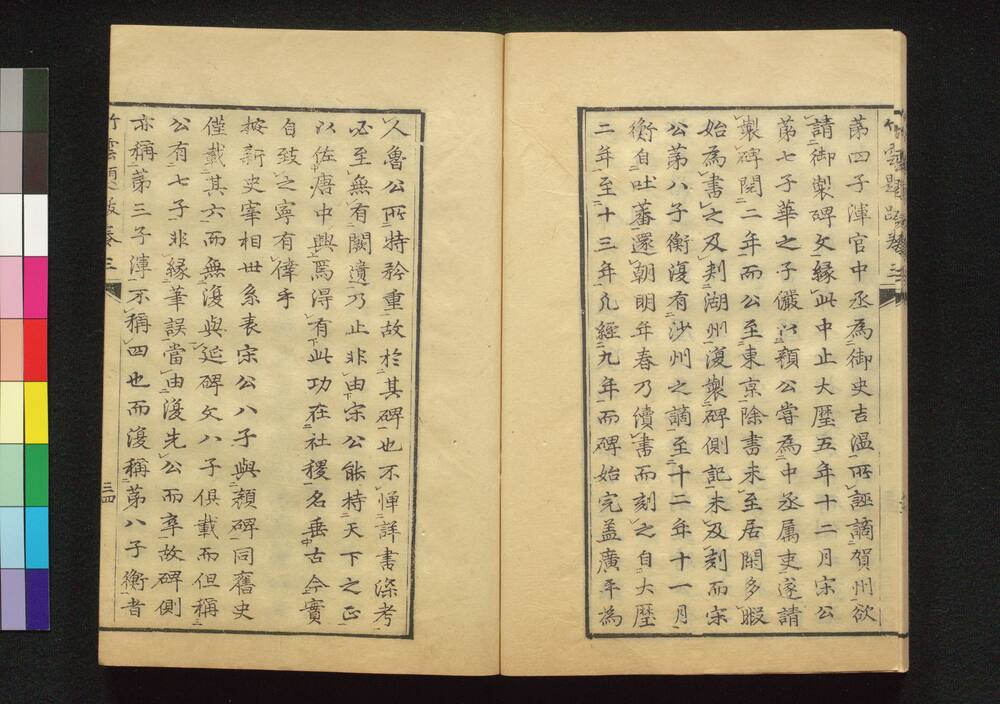 竹雲題跋卷三
第四子渾官中丞為御史吉溫所誣謫賀州欲
請御製碑文緣此中止大歷五年十二月宋公
第七子華之子儼以顏公嘗為中丞屬吏遂請
製碑閱二年而公至東京除書未至居閑多暇
始為書之及刺湖州復製碑側記未及刻而宋
公第八子衡復有沙州之謫至十二年十一月
衡自吐蕃還朝明年春乃償書而刻之自大歷
二年至十三年凡經九年而碑始完蓋廣平為
人魯公所特矜重故於其碑也不憚詳書深考
必至無有闕遺乃止非由宋公能持天下之正
以佐唐中興焉得有此功在社稷名垂古今實
自致之寧有偉乎
按新史宰相世系表宋公八子與顏碑同舊史
僅載其六而無復與延碑文八子俱載而但稱
公有七子非緣華誤當由復先公而卒故碑側
亦稱第三子渾不稱四也而復稱第八子衡者
竹雲題跋卷三
三四